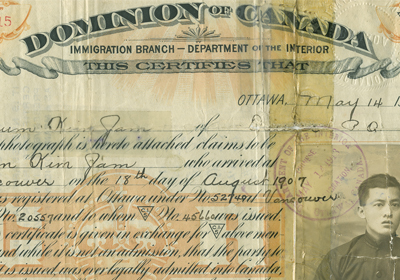 DOMINION OF CANADA
IMMIGRATION BRANCH – DEPARTMENT OF THE INTERIOR
THIS CERTIFIES THAT
OTTAWA, May 14
of
photograph is hereto attached claims to be
Kim Jam who arrived at
couver on the 18th day of August 1907
is registered at Ottawa under No. Vancouver
No. 20557 and to whom No. was issued.
certificate is given in exchange for above men
and while it is not an admission, that the party to
is issued, was ever legally admitted into Canada,